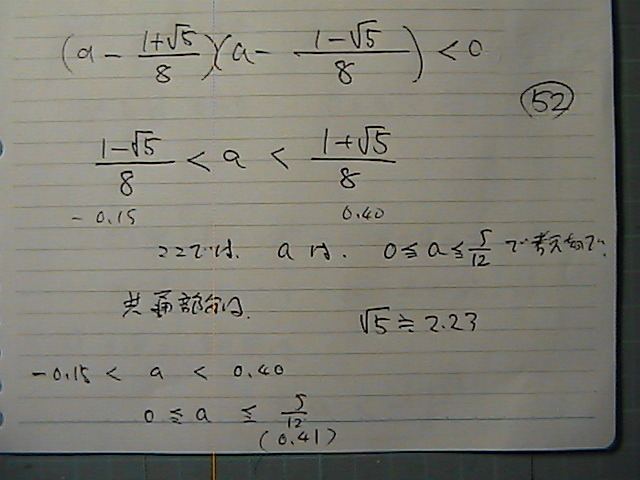 (a - (1+√5)/8)(a - (1-√5)/8) < 0
52
(1-√5)/8 < a < (1+√5)/8
-0.15 0.40
ここでは、aは、0≦a≦5/12で考えるので、
共通部分は、
√5≒2.23
-0.15 < a < 0.40
0≦a≦5/12
(0.41)